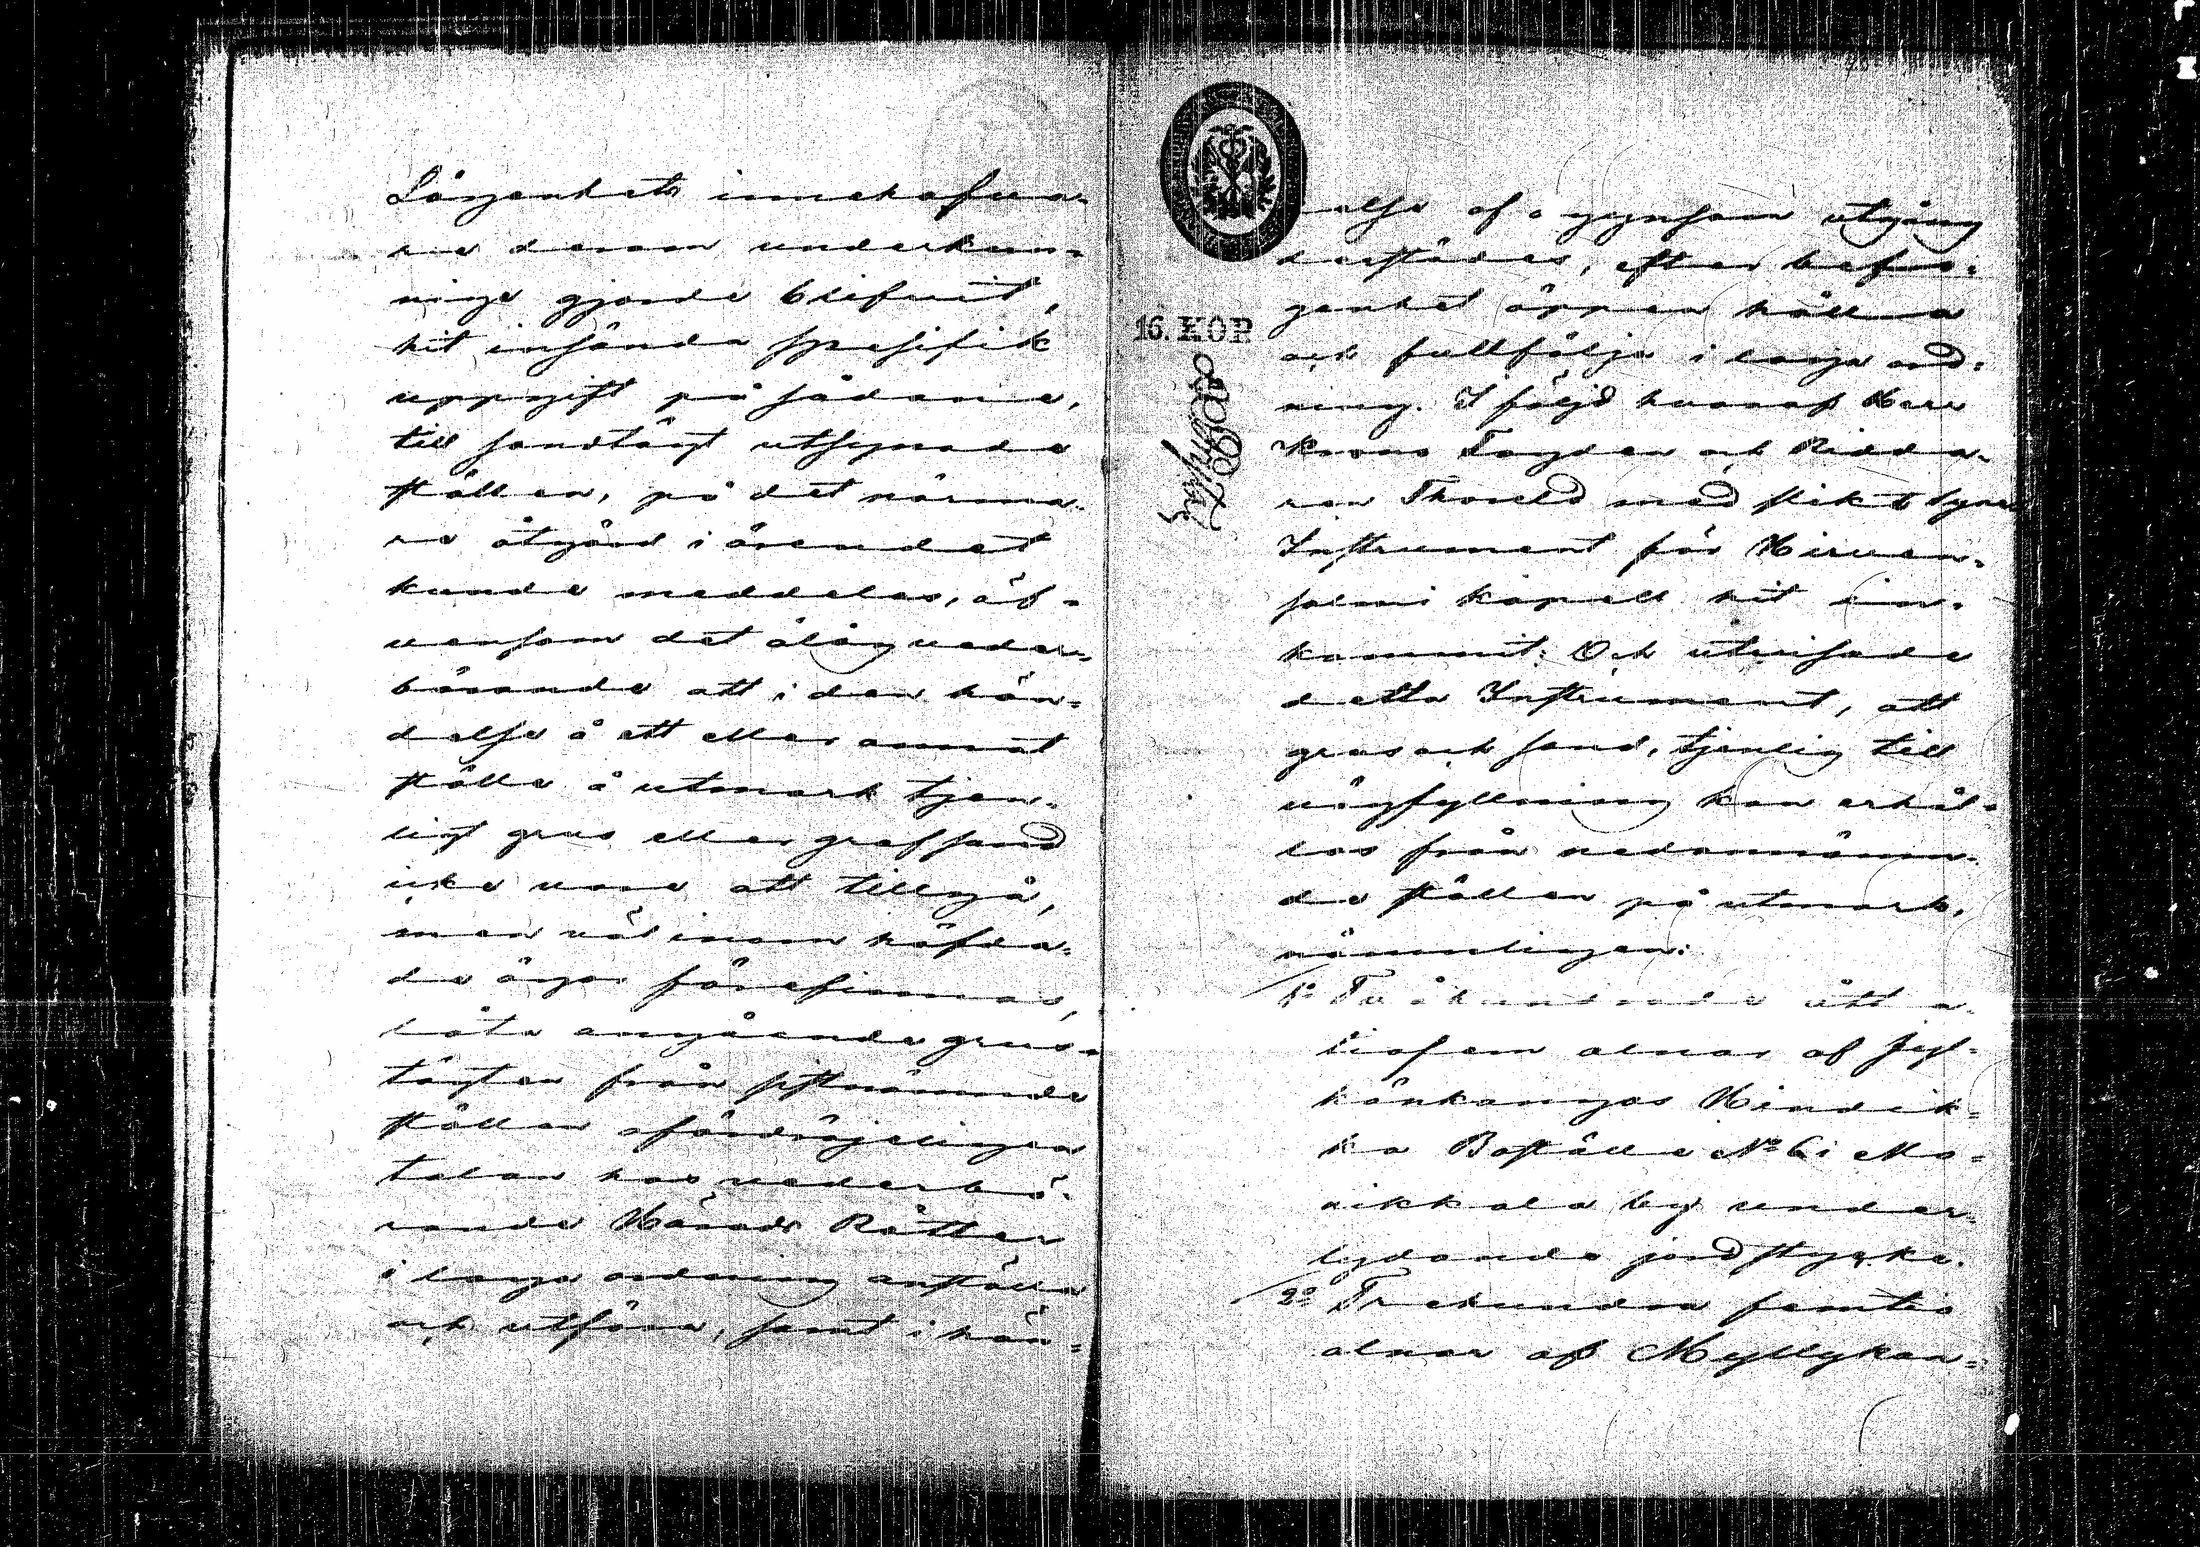 Lägenhets innehafva-
re derom underkun-
nige gjorde blifvit,
hit insända spesifik
uppgift på sådane,
till sandtägt utsynade
ställen, på det närma-
re åtgärd i ärendet
kunde meddelas, äf-
vensom det ålåg veder-
börande att i den hän-
delse å ett eller annat
ställe å utmark tjen-
ligt grus eller grofsand
icke vore att tillgå,
men väl inom häfda-
de ägor förefinnas,
låta angående grus-
tägten från sistnämnde
ställen ofördröjeligen
talan hos vederbö-
rande Härads Rätter
i laga ordning anställa
och utföra, samt i hän-
78
delse af ogynsam utgång
derstädes, efter befo-
genhet öppen hålla
och fullfölja i laga ord-
ning. I följd hvaraf Herr
Krono Fogden och Ridda-
ren Thoreld med slikt Syne
Instrument för Hirven-
salmi kapell hit in-
kommit: Och utvisade
detta Instrument, att
grus och sand, tjenlig till
vägfyllning kan erhål-
las från nedannämn-
de ställen på utmark,
nämnligen:
1o Tvåhundrade åtta-
tiofem alnar af Jyl-
hänkangas Hindik-
ka Boställe No 6 i Mo-
nikkala by under-
lydande jordstycke.
2o Trehundra femtio
alnar af Myllykan-
16. KOP